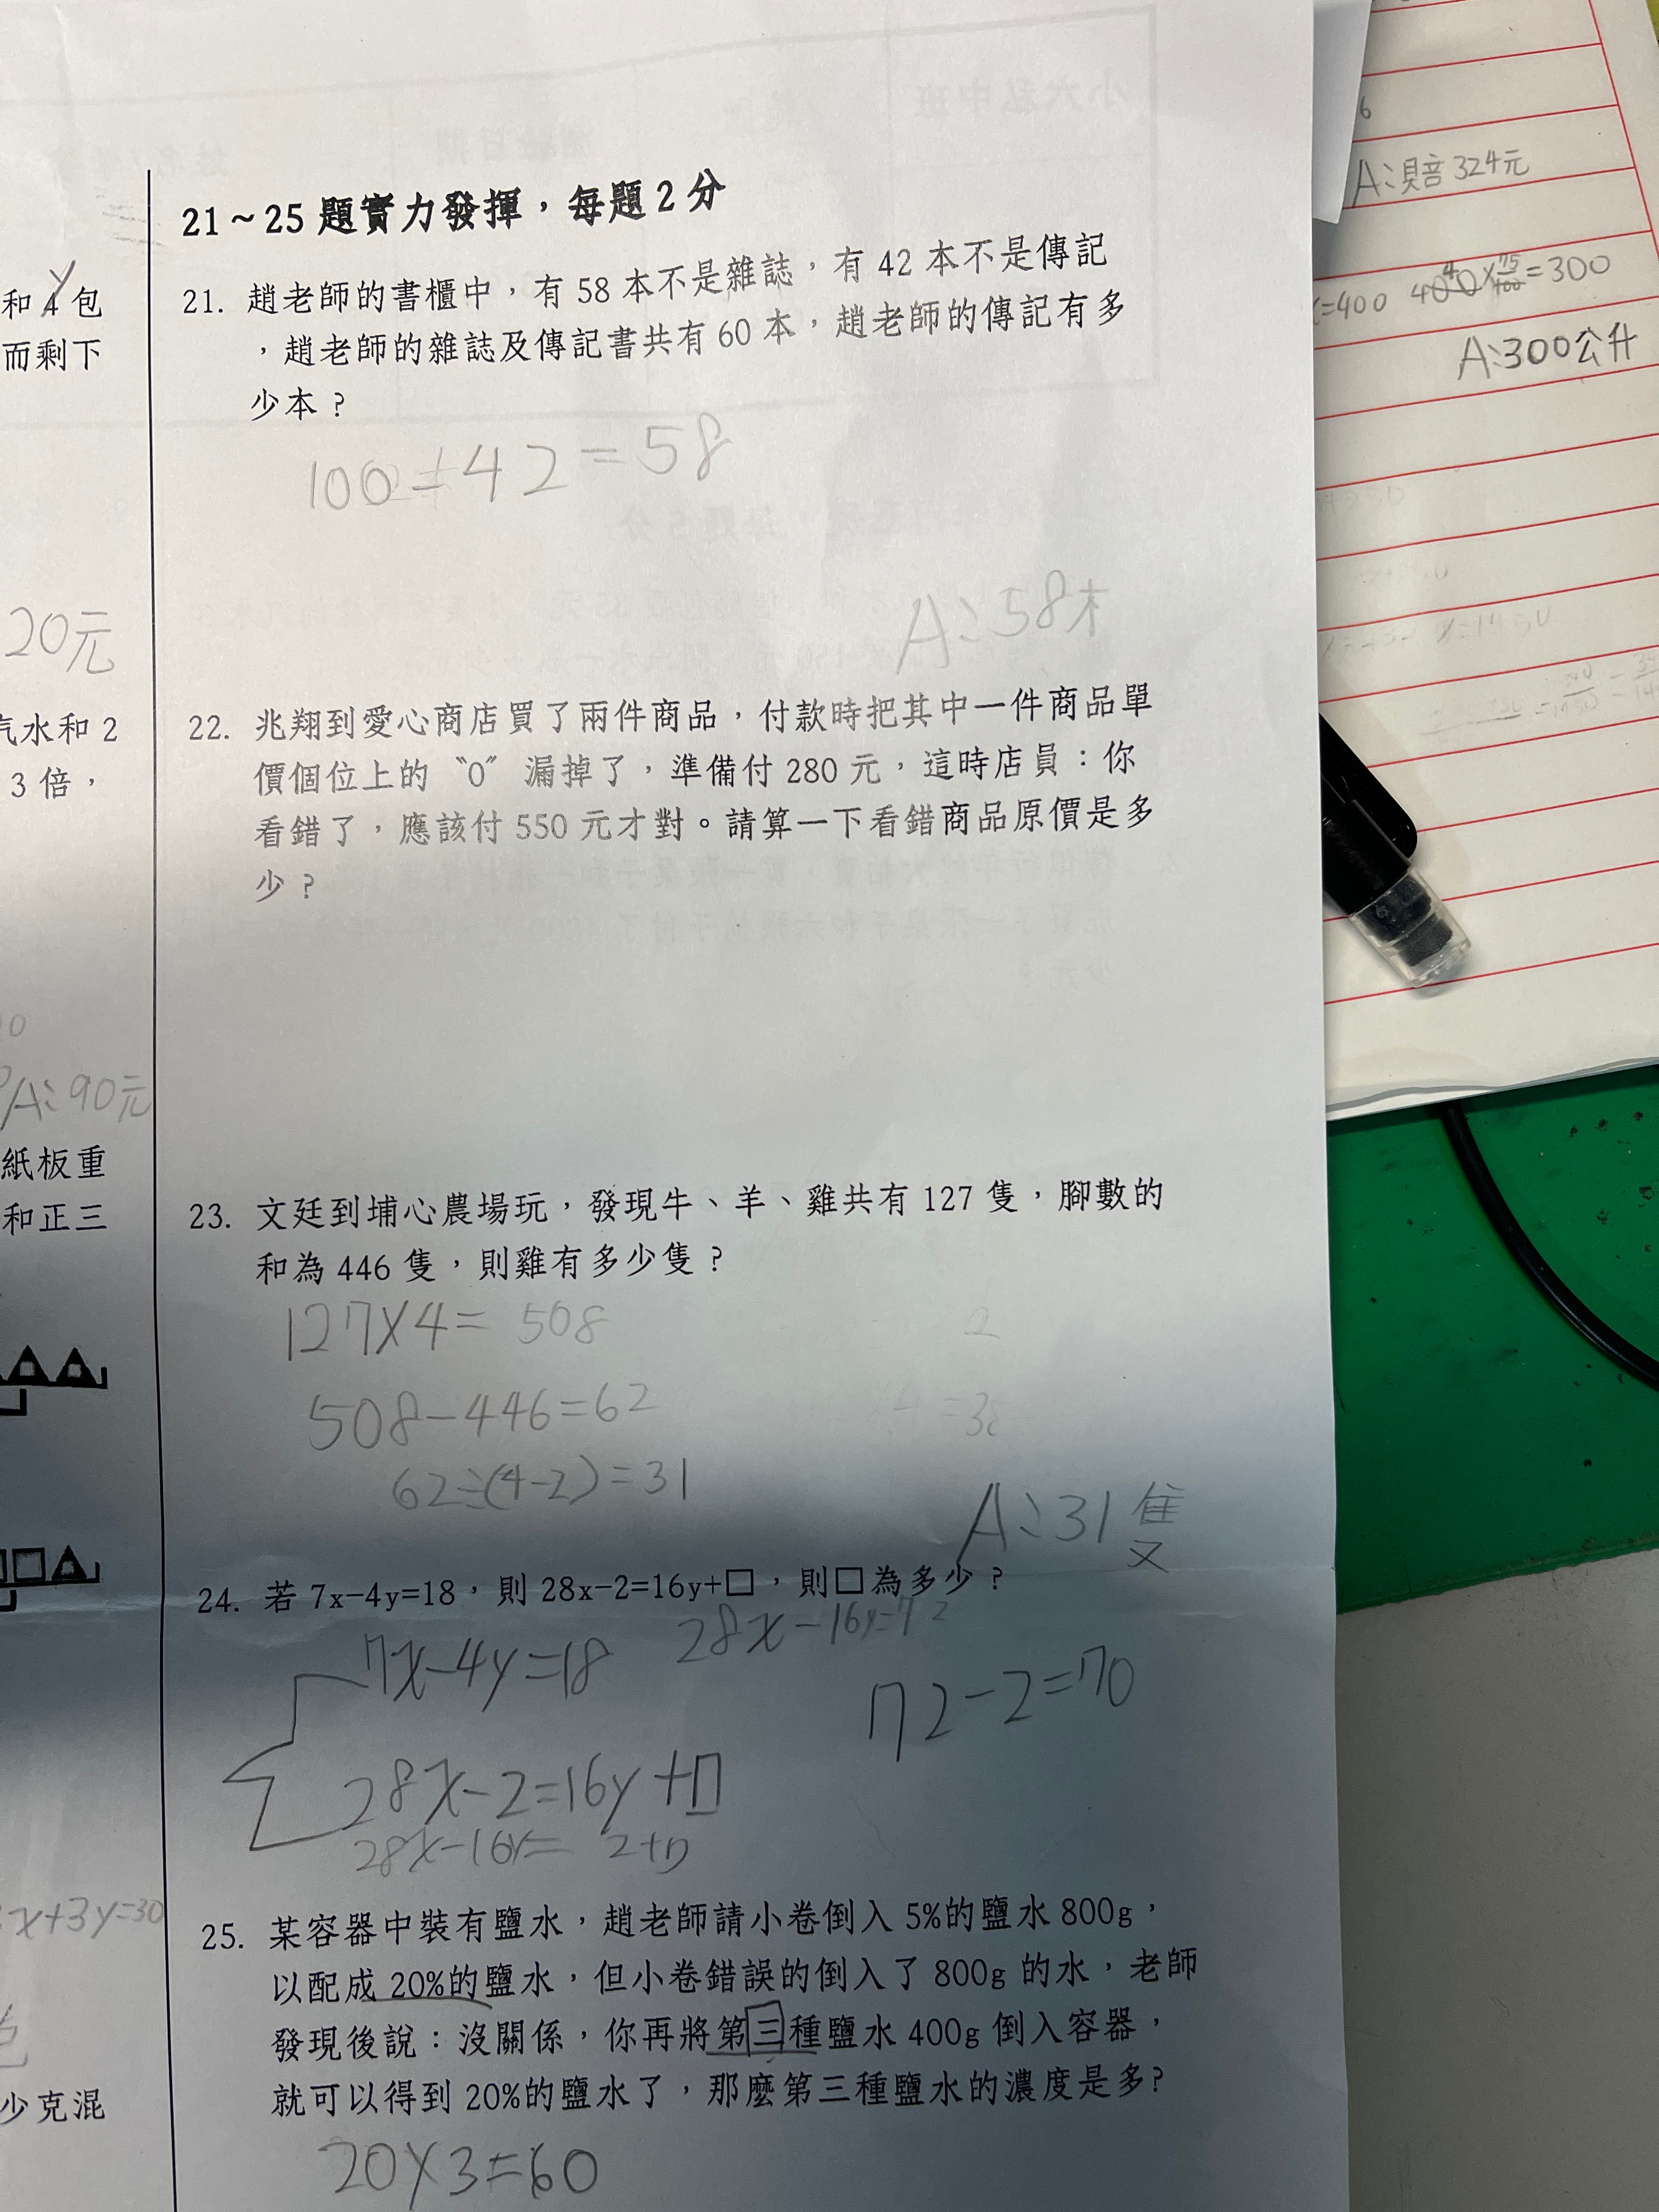 21~25 題實力發揮,每題2分
21. 趙老師的書櫃中,有 58 本不是雜誌,有 42 本不是傳記
,趙老師的雜誌及傳記書共有 60 本,趙老師的傳記有多
少本?
42=58
A:58本
22. 兆翔到愛心商店買了兩件商品,付款時把其中一件商品單
價個位上的〝0〞漏掉了,準備付 280 元,這時店員:你
看錯了,應該付 550 元才對。請算一下看錯商品原價是多
少?
23. 文廷到埔心農場玩,發現牛、羊、雞共有 127 隻,腳數的
和為 446 隻,則雞有多少隻?
127×4= 508
508-446=62
62÷(4-2)=31
A:31隻
24. 若 7x-4y=18,則 28x-2=16y+□,則□為多少?
7x-4y=18
28x-16y=72
72-2=70
28x-2=16y+□
28x-16y= 2+□
25. 某容器中裝有鹽水,趙老師請小卷倒入 5%的鹽水 800g,
以配成 20%的鹽水,但小卷錯誤的倒入了 800g 的水,老師
發現後說:沒關係,你再將第三種鹽水 400g 倒入容器,
就可以得到 20%的鹽水了,那麼第三種鹽水的濃度是多?
20×3=60
和 4 包
y
而剩下
20元
汽水和 2
3 倍,
A:90元
紙板重
和正三
x+3y=30
少克混
6
A:賠 324元
=400 400×75/100=300
4
A:300公升